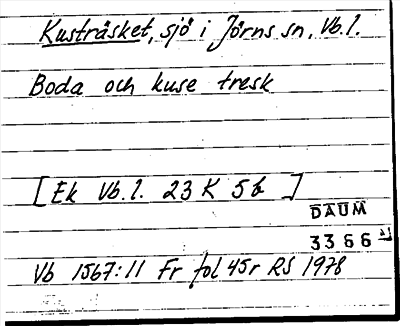 Kusträsket, sjö i Jörns sn, Vb. l.
Boda och kuse tresk
[Ek Vb. l. 23 K 5 b ]
DAUM
3366
Vb 1567:11 Fr fol 45r RS 1978